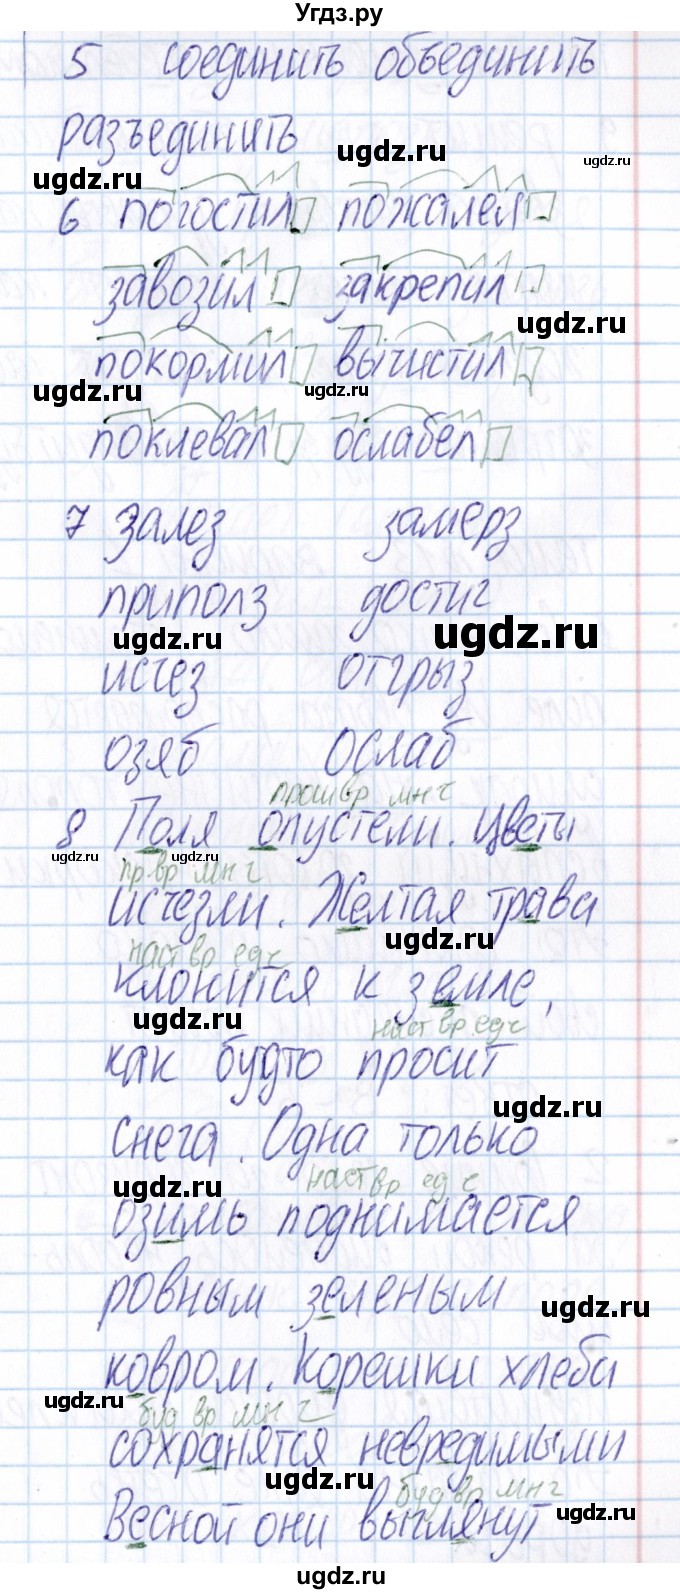 Угдз.ру
5 соединить объединить
разъединить
ugdz.ru ugdz.ru ugdz.ru
6 погостил пожалел
завозил закрепил
ugdz.ru
покормил вычистил
ugdz.ru ugdz.ru
поклевал ослабел
7 залез замерз
приполз достиг
ugdz.ru ugdz.ru
исчез отгрыз
озяб ослаб
прош вр мн ч
8 Поля опустели. Цветы
ugdz.ru ugdz.ru
пр вр мн ч
исчезли. Желтая трава
ugdz.ru
наст вр ед ч
клонится к земле,
ugdz.ru
наст вр ед ч
как будто просит
ugdz.ru
снега. Одна только
наст вр ед ч
ugdz.ru
озимь поднимается
ровным зеленым
ugdz.ru
ковром. Корешки хлеба
ugdz.ru
буд вр мн ч
сохранятся невредимыми
ugdz.ru
буд вр мн ч
ugdz.ru
Весной они выглянут
ugdz.ru